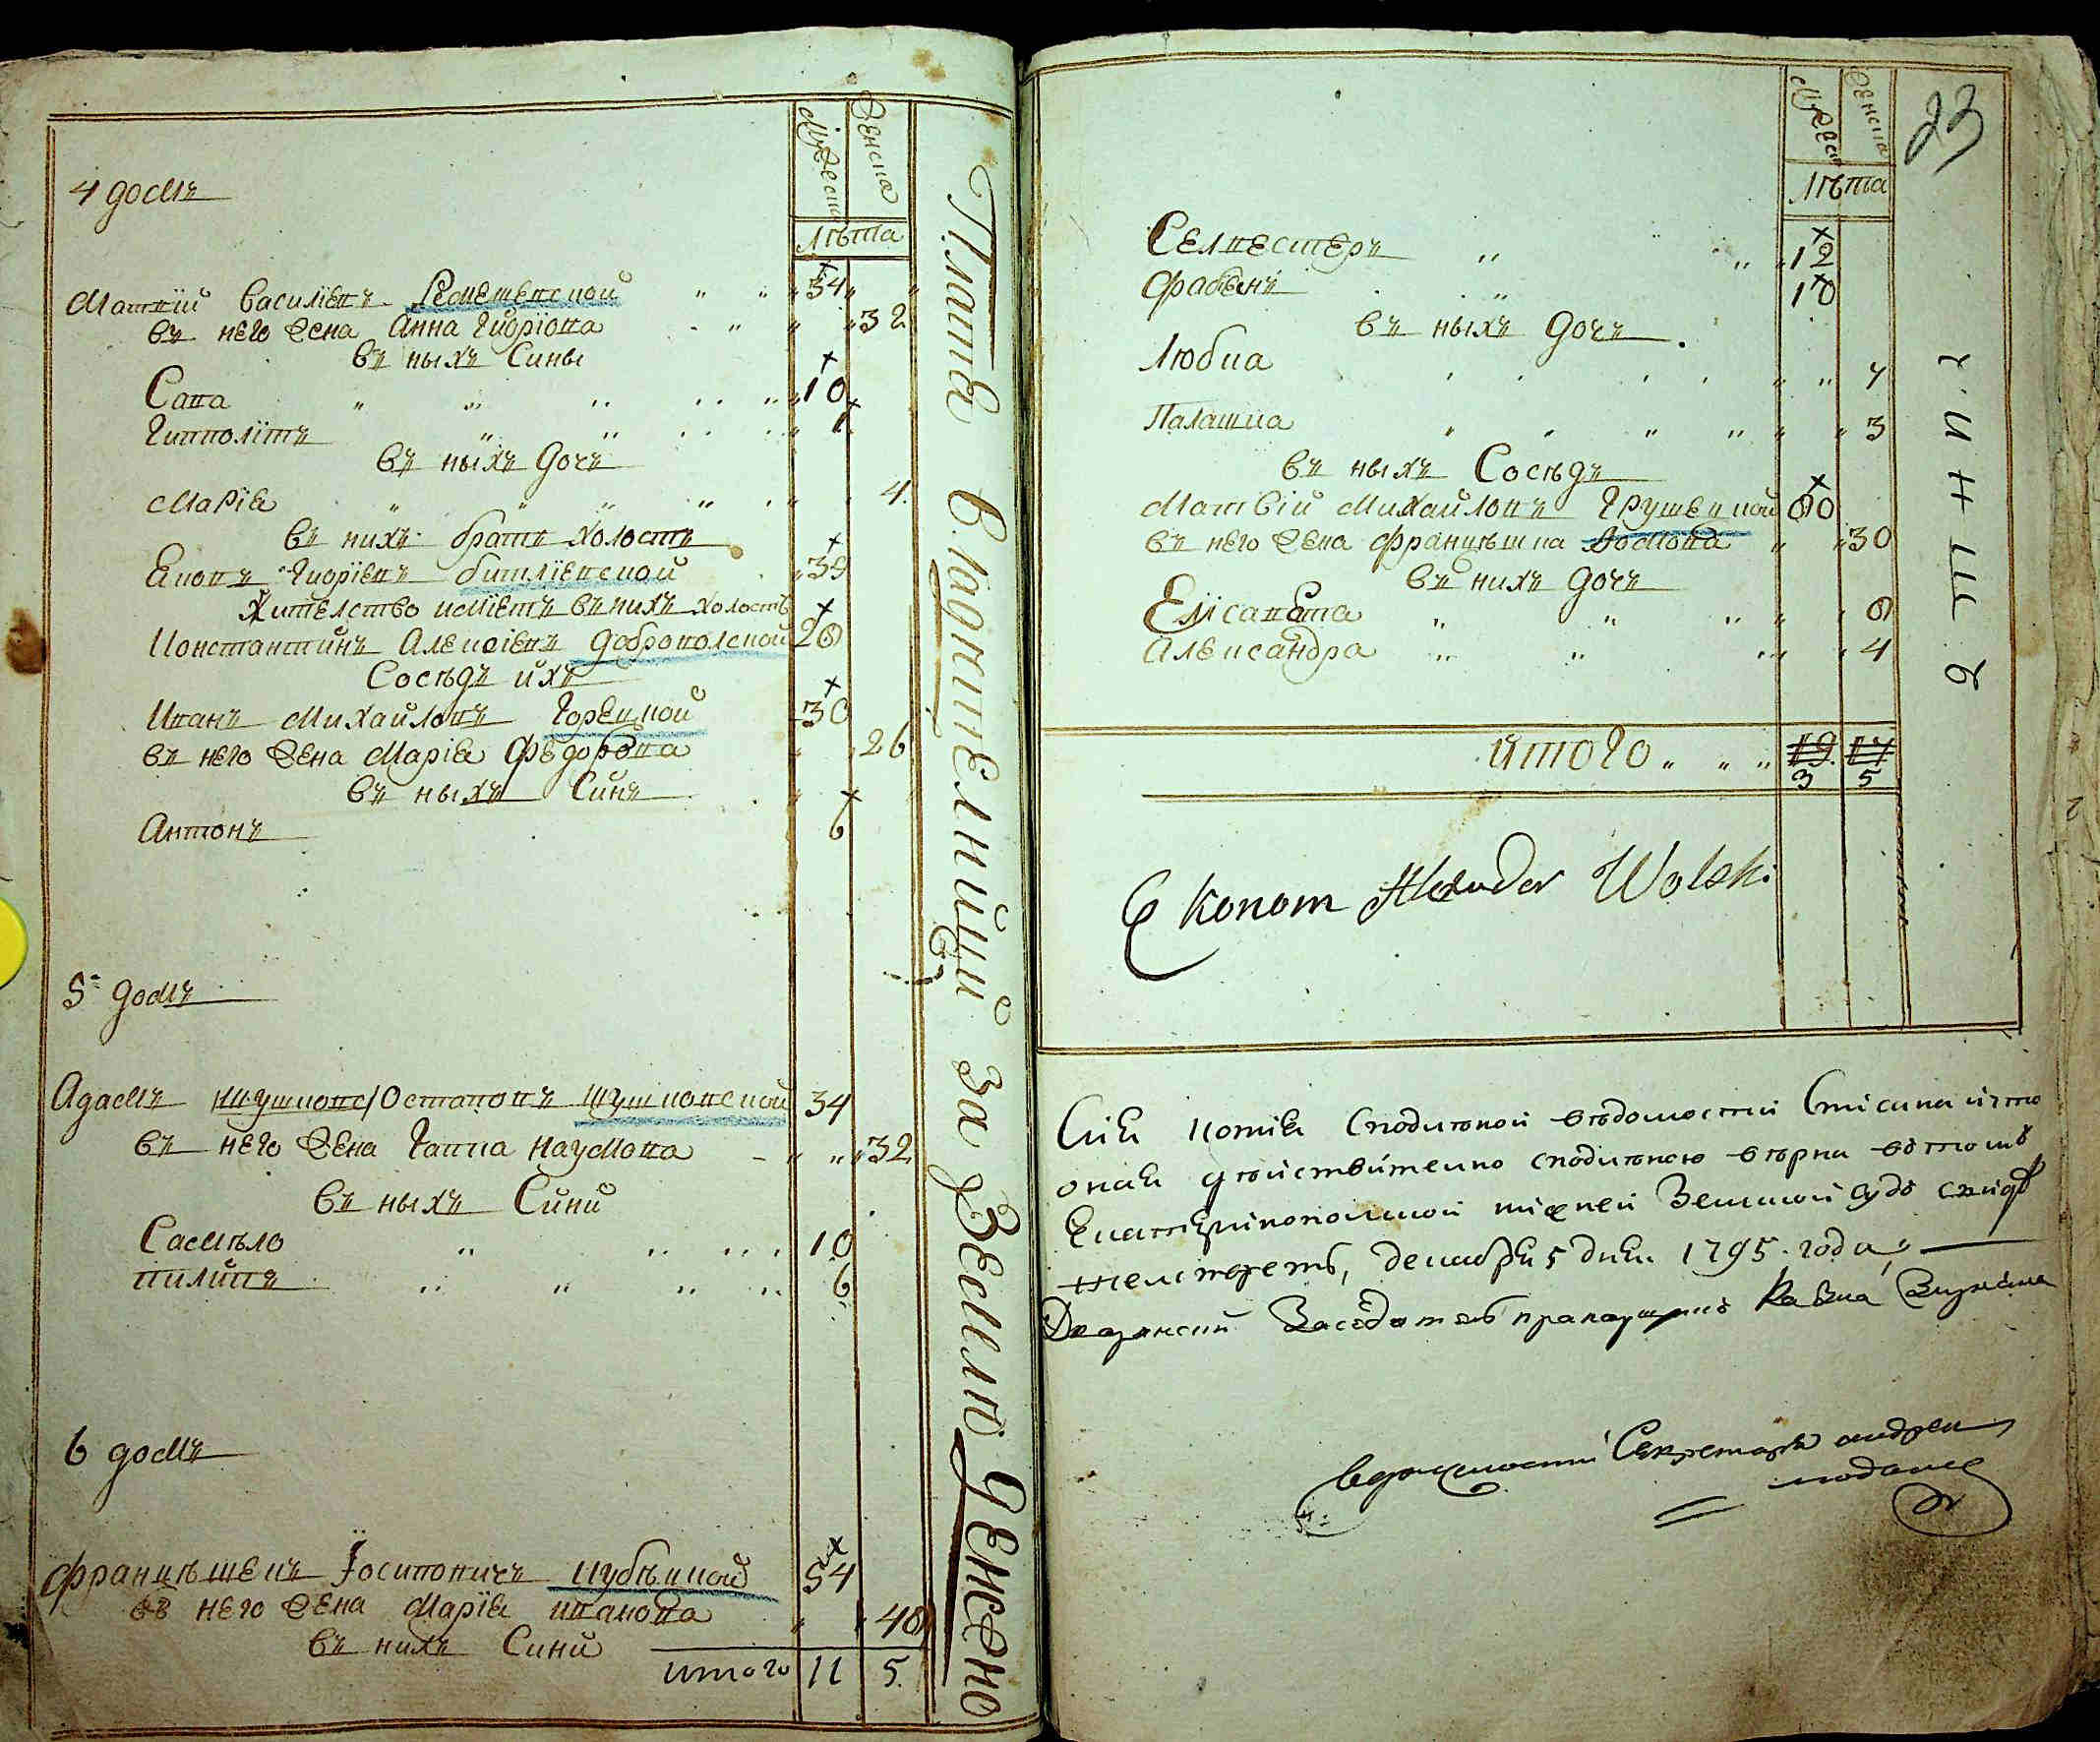 Мужеска
Женска
Лѣта
4 домъ
Матвій Василіевъ Реметевской 34
въ него жена Анна Игоріова 32
въ ныхъ Сины
Сава 10
Гипполітъ 1
въ ныхъ дочь
Марія 4
въ нихъ братъ холостъ
39
Жителство имѣетъ въ нихъ холостъ
Константинъ Алексіевъ Доброволской 28
Сосѣдъ ихъ
Иванъ Михайловъ Горецкой 30
въ него жена Марія Федорова 26
въ ныхъ Синъ
Антонъ 6
5 домъ
Адамъ Остаповъ Шушковской 34
въ него жена Ганна Наумова 32
въ ныхъ Сини
Самѣло 10
пилипъ 6
6 домъ
францѣшекъ Іосиповичъ 54
въ него жена Марія иванова 48
въ нихъ Сини
итого 11 5
Плата владителнийции за Землю денежно
23
Мужеска
Женска
Лѣта
Селвестеръ 12
Фабіенъ 10
въ ныхъ дочь
Любка 7
Палашка 3
въ ныхъ Сосѣдъ
Матвій Михайловъ Грушецкой 60
въ него жена францѣшка Адамова 30
въ нихъ дочь
Елісавета 8
Александра 4
итого 19 17
3 5
Ekonom Alexander Wolski
Сия копия сподлинной вѣдомости списана и что
оная дѣйствительно сподлинною вѣрна въ томъ
нижней Земской судъ свидѣ
тельствуетъ, декабря 5 дня 1795 года
Дворянский Заседатель прапорщикъ
въ должности Секретаря андрей